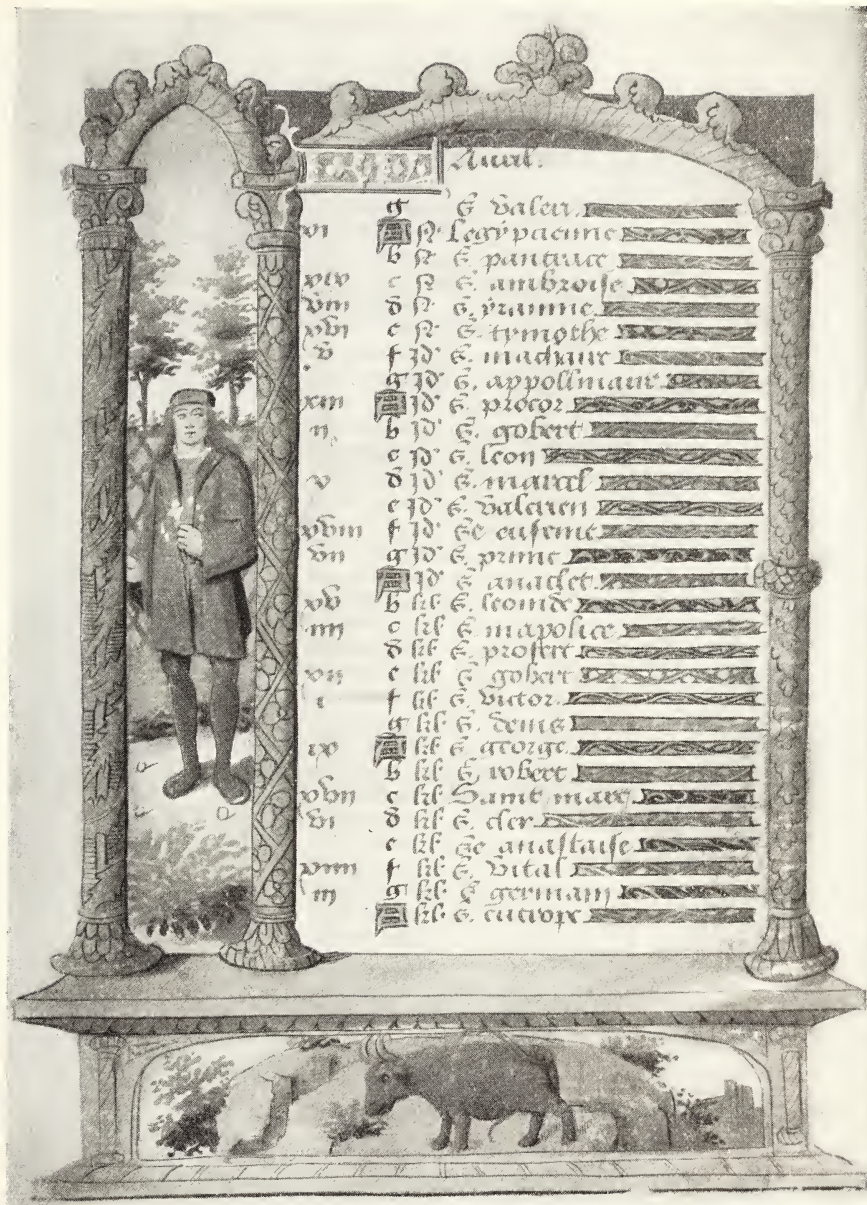 KL Avril.
g S. valeri.
vi A N. Legypcienne
b N. S. pancrace
xiv c N. S. ambroise
viii d N. S. yranne
xvi e N. S. tymothe
v f Id S. machaire
g Id S. appollinaire
xiii A Id S. procor
ii b Id S. gobert
c Id S. leon
v d Id S. marcel
e Id S. valerien
xviii f Id Se eufeme
vii g Id S. prime
A Id S. anaclet
xv b kl S. leonide
iiii c kl S. mapolice
d kl S. prosert
xii e kl S. gobert
i f kl S. victor
g kl S. denis
ix A kl S. george
b kl S. robert
xvii c kl Saint marc
vi d kl S. cler
e kl Se anastaise
xiiii f kl S. vital
iii g kl S. germain
A kl S. eutrope